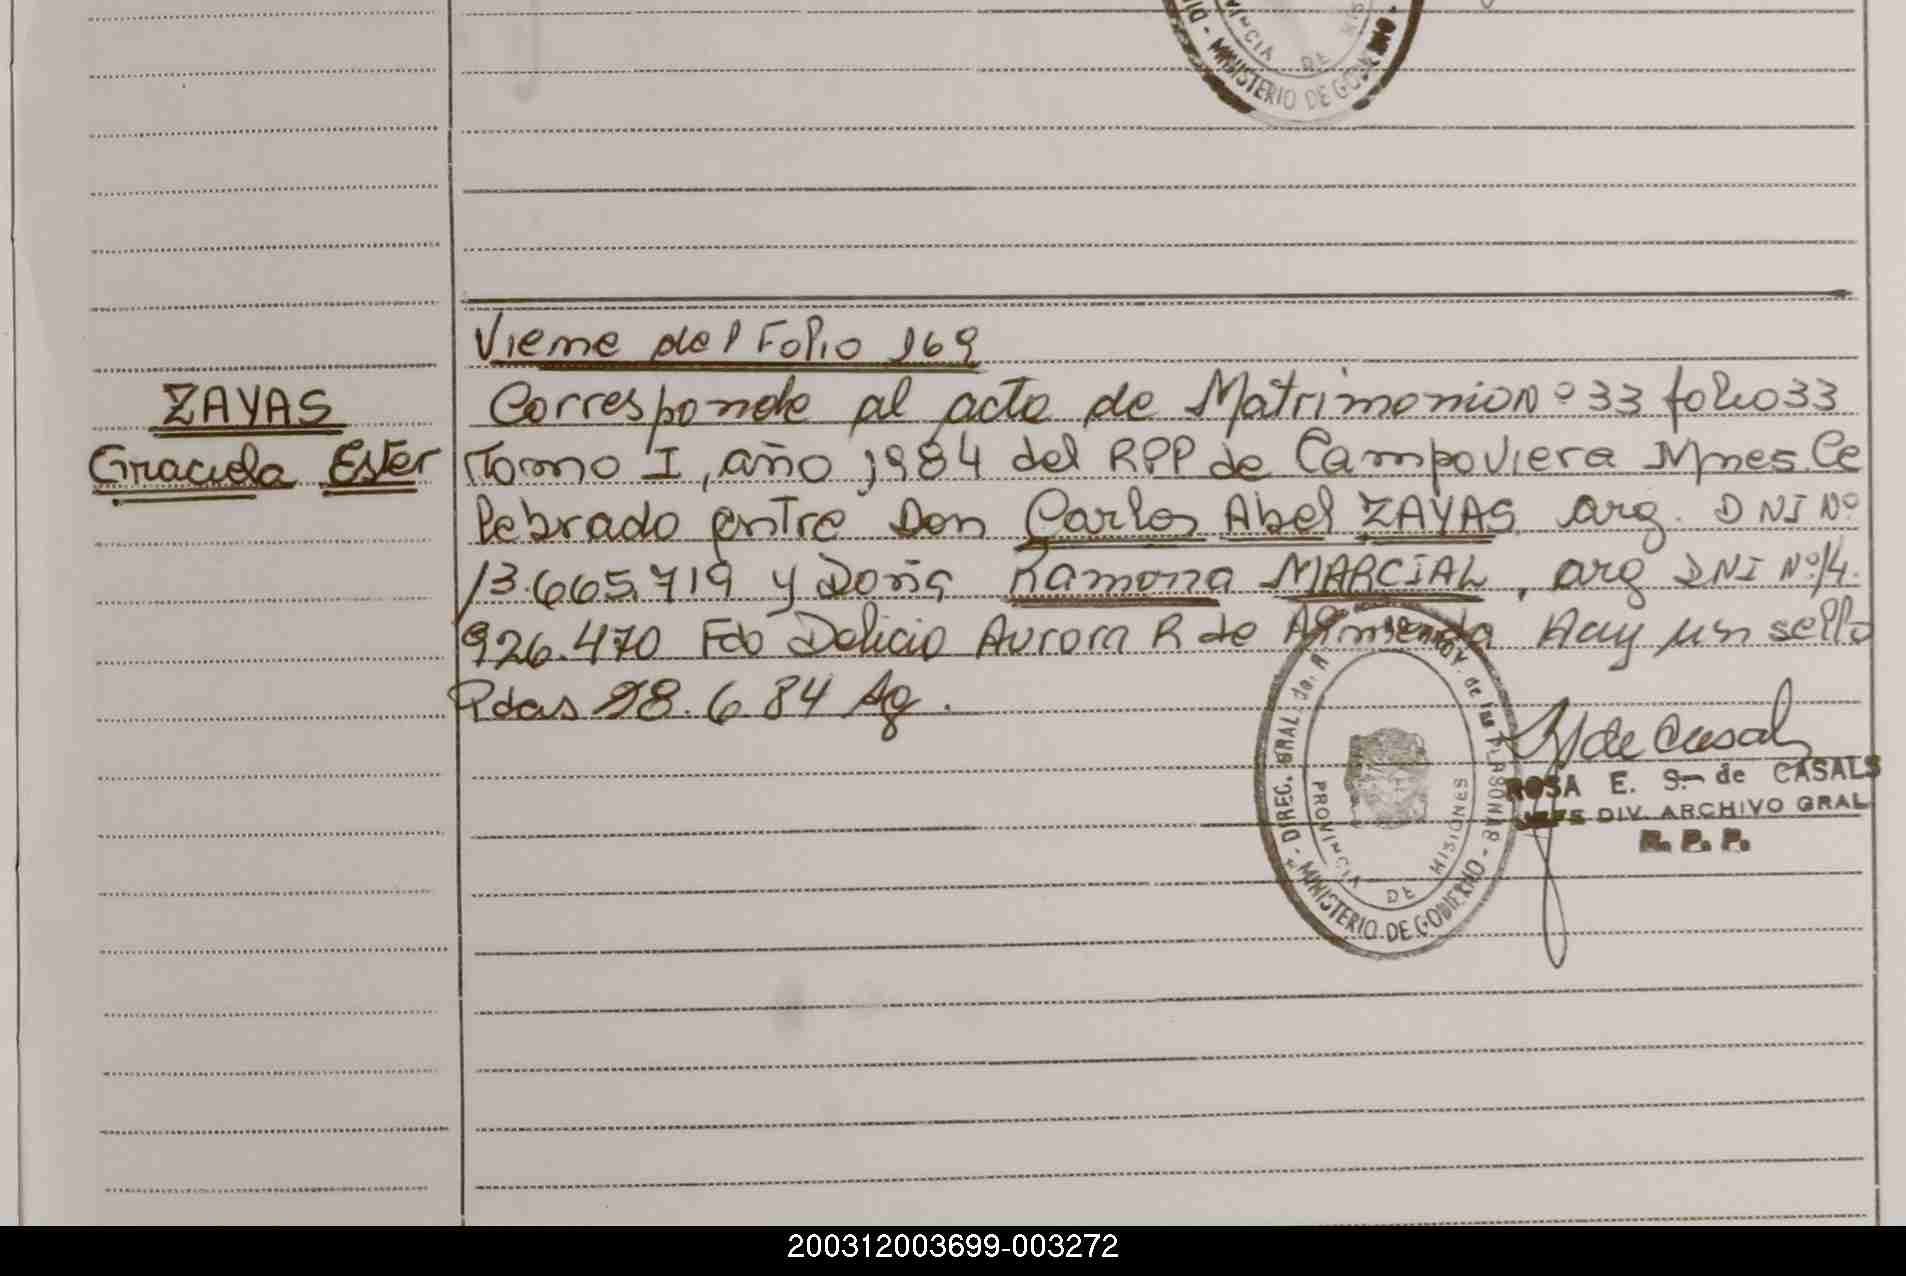 DI - MINISTERIO DE GOBIERNO -
PROVINCIA DE MIS
Viene del Folio 169
ZAYAS
Graciela Ester
Corresponde al acta de Matrimonio Nº 33 folio 33
Tomo I, año 1984 del RPP de Campo Viera Mnes. Ce
lebrado entre Don Carlos Abel ZAYAS arg. DNI Nº
13.665.719 y Doña Ramona MARCIAL, arg DNI Nº 14.
926.470 Fdo Delicio Aurora R de Almienda Hay un sello
Pdas 28.6.84 Ag.
- DIREC. GRAL. de PROV. de las PERSONAS -
MINISTERIO DE GOBIERNO
PROVINCIA DE MISIONES
de Casals
ROSA E. S. de CASALS
JEFE DIV. ARCHIVO GRAL
R. P. P.
200312003699-003272